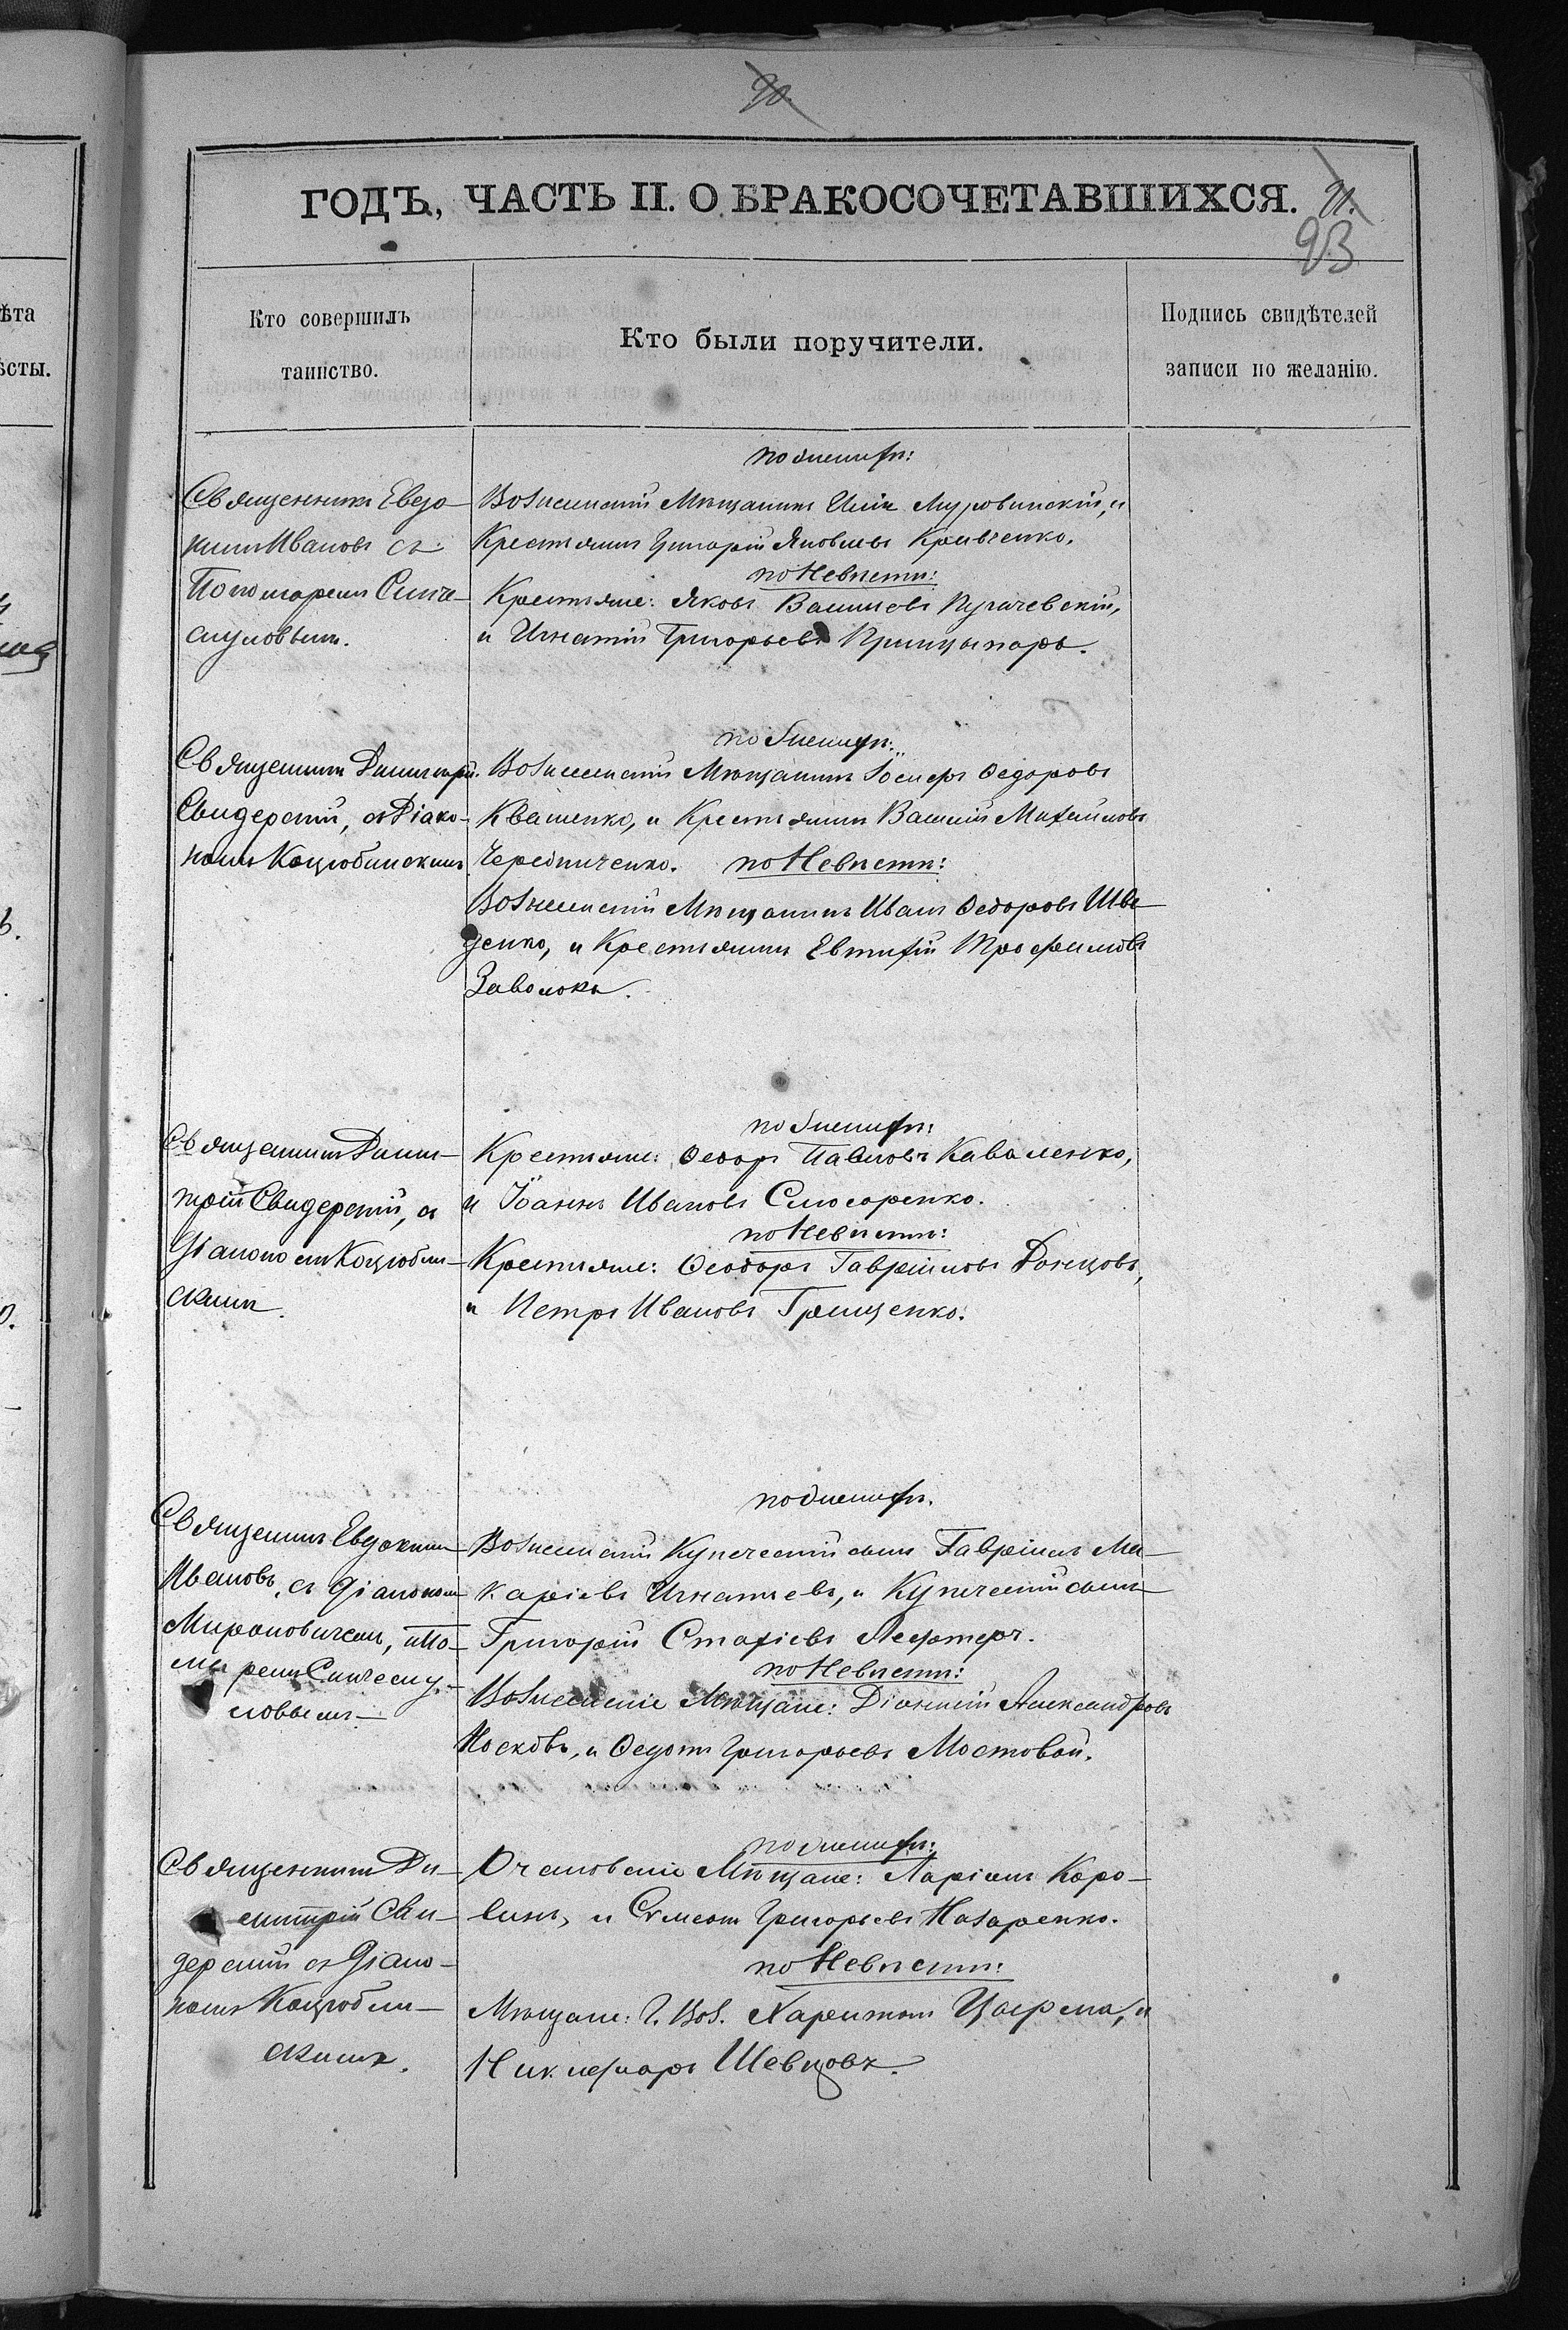 90.
ГОДЪ, ЧАСТЬ II. О БРАКОСОЧЕТАВШИХСЯ.
91.
93
ѣта
ѣсты.
Кто совершилъ
таинство.
Кто были поручители.
Подпись свидѣтелей
записи по желанію.
по женихѣ:
Священникъ Евдо-
кимъ Ивановъ съ
Пономаремъ Синче-
сауловымъ.
Вознесенскій Мѣщанинъ Илія Муровинскій, и
Крестьянинъ Григорій Яковлевъ Кравченко.
по Невѣстѣ:
Крестьяне: Яковъ Василіевъ Пугачевскій,
и Игнатій Григорьевъ Принцыпаръ.
по Женихѣ:
Священникъ Димитрій
Свидерскій, съ Діако-
номъ Коцюбинскимъ
Вознесенскій Мѣщанинъ Іосифъ Ѳедоровъ
Квашенко, и Крестьянинъ Василій Михайловъ
Чередниченко. по Невѣстѣ:
Вознесенскій Мѣщанинъ Иванъ Ѳедоровъ Шве-
денко, и Крестьянинъ Евтихій Трофимовъ
Заволока.
по Женихѣ:
Священникъ Дими-
трій Свидерскій, съ
Діакономъ Коцюбин-
скимъ.
Крестьяне: Ѳеодоръ Павловъ Коваленко,
и Іоаннъ Ивановъ Слюсаренко.
по Невѣстѣ:
Крестьяне: Ѳеодоръ Гавріиловъ Донцовъ,
и Петръ Ивановъ Грищенко.
по женихѣ.
Священникъ Евдокимъ
Ивановъ, съ Діакономъ
Мироновичемъ, и По-
маремъ Синчесау-
ловымъ
Вознесенскій Купеческій сынъ Гавріилъ Ма-
каріевъ Игнатьевъ, и Купеческій сынъ
Григорій Стахіевъ Лефтеръ.
по Невѣстѣ:
Вознесенскіе Мѣщане: Діонисій Александровъ
Носковъ, и Ѳедотъ Григорьевъ Мостовой.
по женихѣ:
Священникъ Ди-
митрій Сви-
дерскій съ Діако-
номъ Коцюбин-
скимъ.
Очаковскіе Мѣщане: Ларіонъ Каро-
линъ, и Симеонъ Григорьевъ Назаренко.
по Невѣстѣ:
Мѣщане: Г. Воз. Харитонъ и
Никифоръ Шевцовъ.